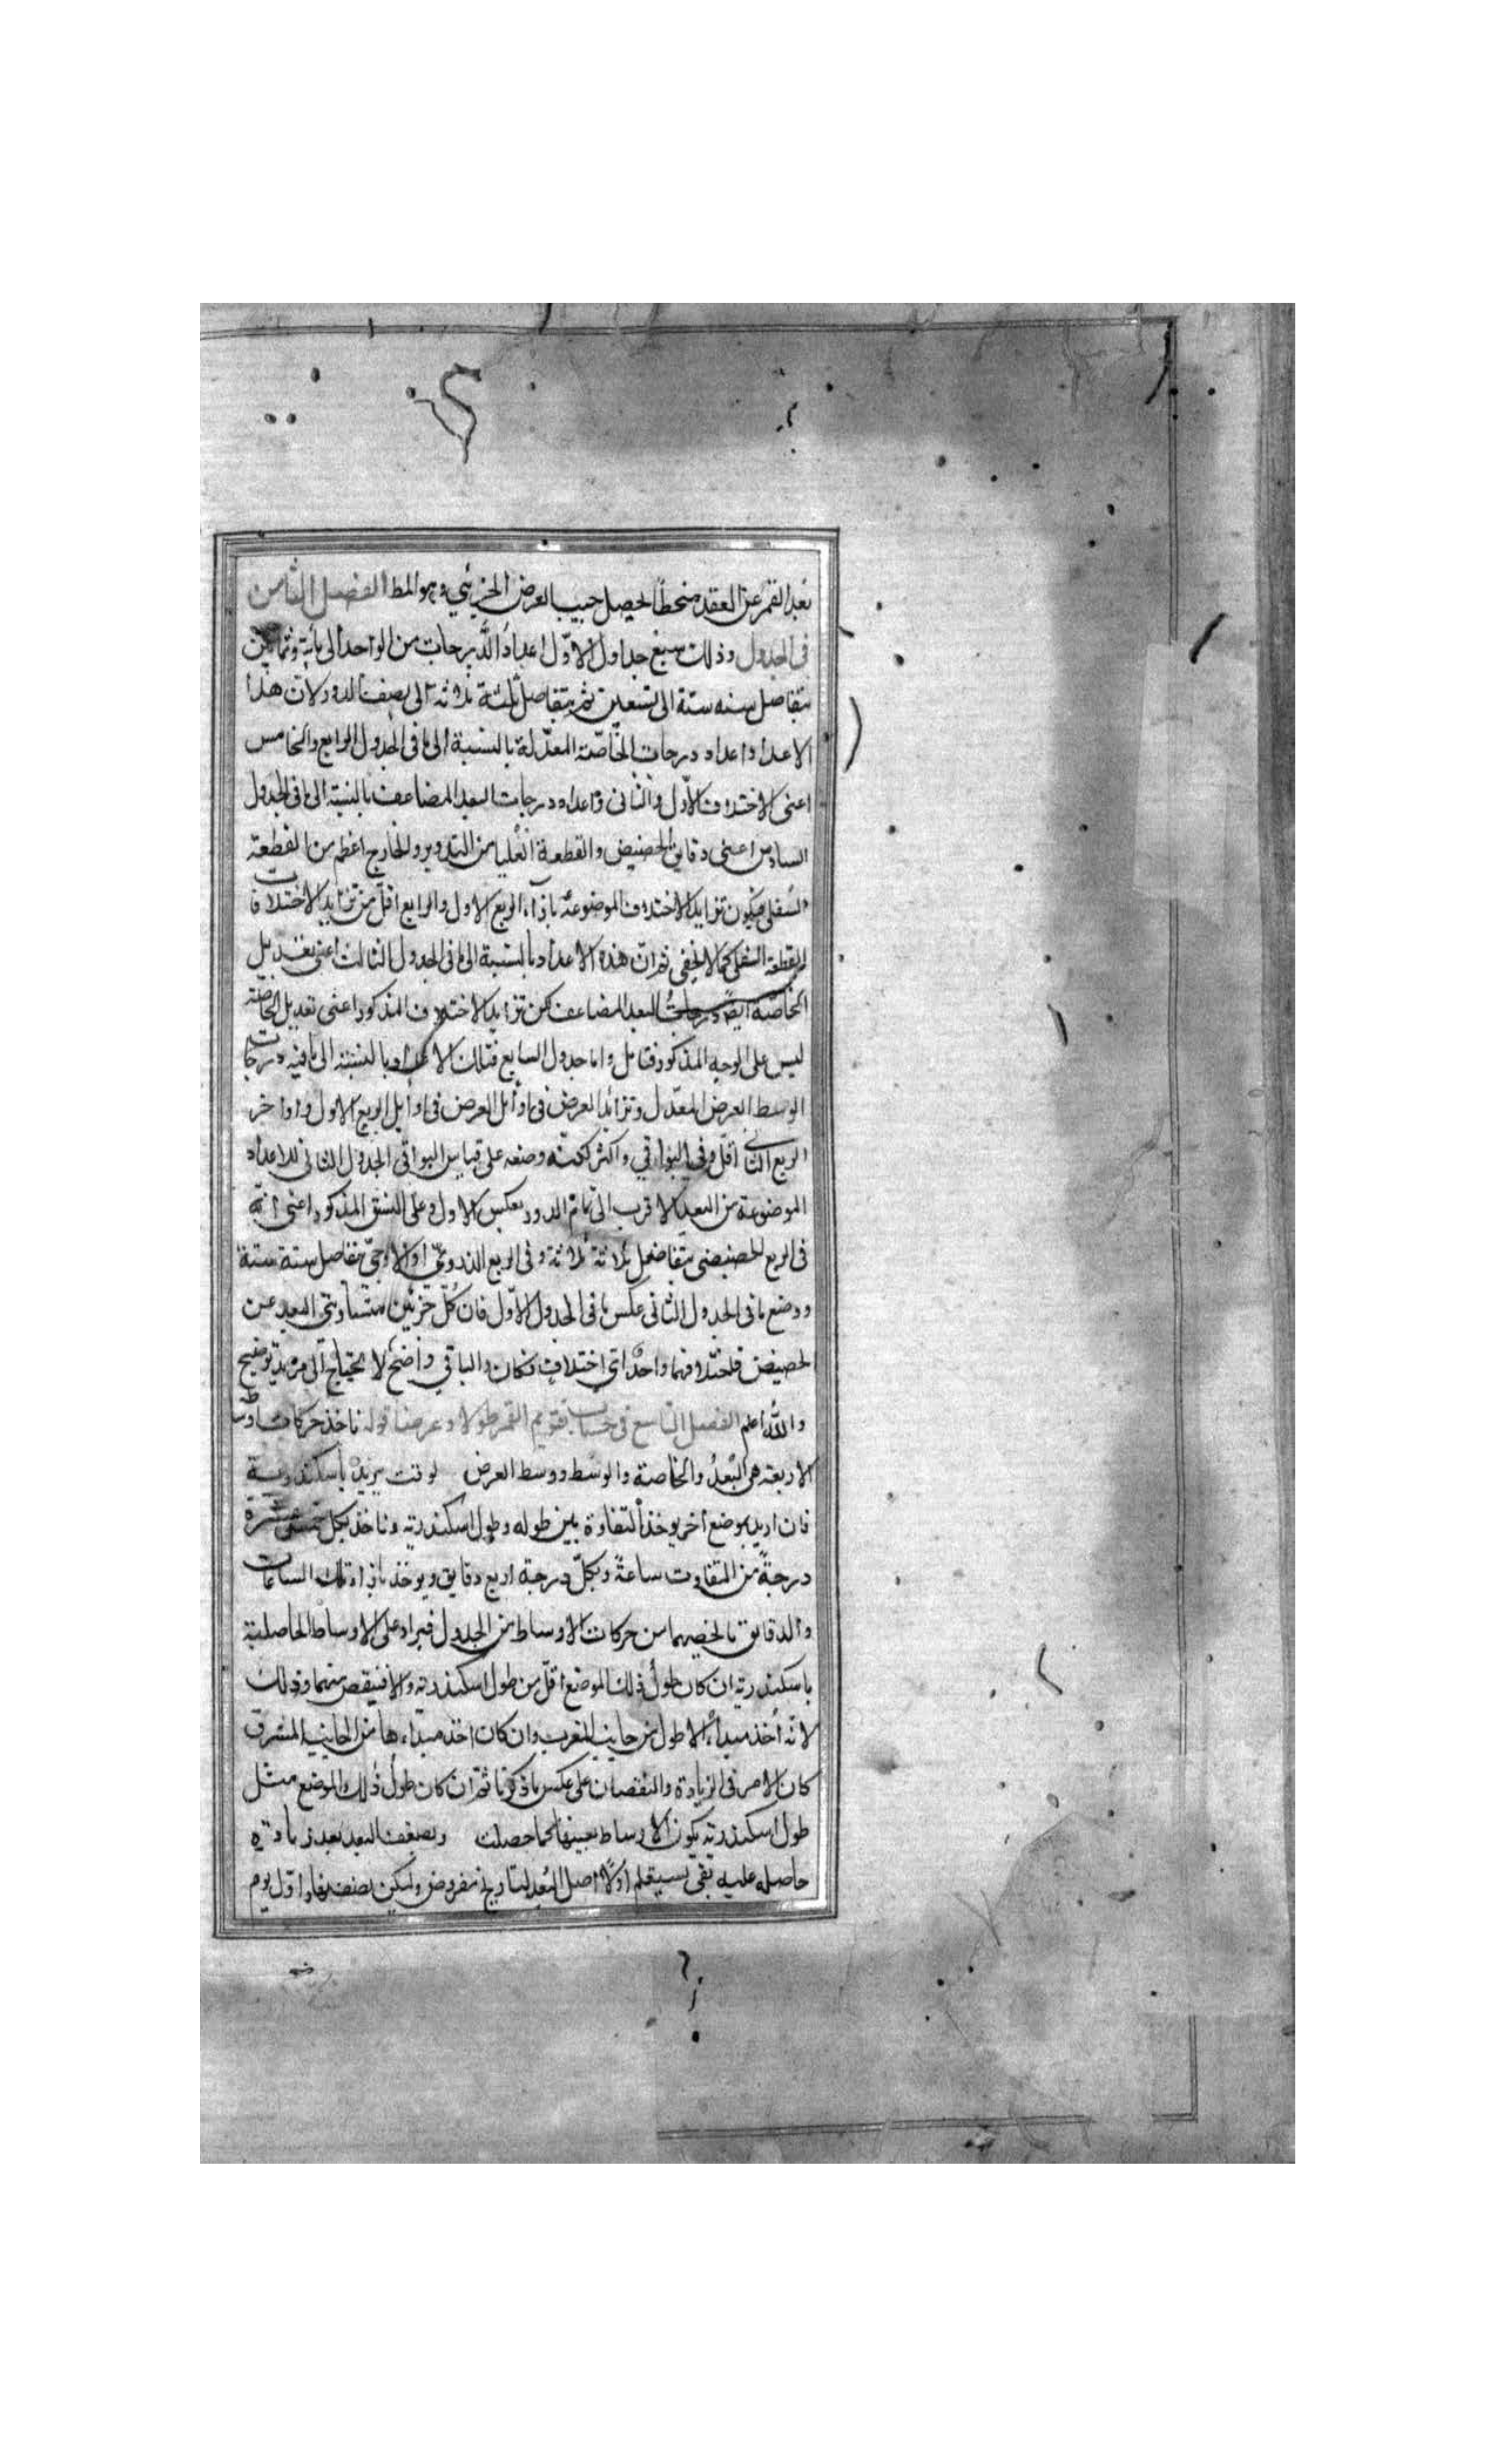 بعد القمر عن العقدة منحطا ليحصل جيب العرض الجزئي وهو المط الفصل الثامن
في الجدول وذلك سبع جداول الاول اعداد الدرجات من الواحد الى مائة وثمانين
بتفاضل ستة ستة الى تسعين ثم بتفاضل ثلثة ثلاثة الى نصف الدور لان هذا
الاعداد اعداد درجات الخاصة المعدلة بالنسبة الى ما في الجدول الرابع والخامس
اعنى الاختلاف الاول والثاني واعداد درجات البعد المضاعف بالنسبة الى ما في الجدول
السادس اعنى دقايق الحضيض والقطعة العليا من التدوير والخارج اعظم من القطعة
السفلى فيكون تزايد الاختلاف الموضوعة بازاء الربع الاول والرابع اقل من تزايد الاختلافات
للقطعة السفلى كما لا يخفى ثم ان هذه الاعداد بالنسبة الى ما في الجدول الثالث اعنى تعديل
الخاصة ايضا درجات البعد المضاعف لكن تزايد الاختلاف المذكور اعنى تعديل الخاصة
ليس على الوجه المذكور فتامل واما جدول السابع فتلك الاعداد بالنسبة الى ما فيه درجات
الوسط العرض المعدل وتزائد العرض في اوائل العرض في اوايل الربع الاول واواخر
الربع الثاني اقل وفي البواقي واكثر لكنه وضعه على قياس البواقي الجدول الثاني للاعداد
الموضوعة من البعد الاقرب الى تمام الدور بعكس الاول وعلى النسق المذكور اعنى انه
في الربع الحضيضي بتفاضل ثلاثة ثلاثة وفي الربع الذروي او الاوجي بتفاضل ستة ستة
ووضع ما في الجدول الثاني عكس ما في الجدول الاول فان كل جزئين متساويتي البعد عن
الحضيض فاختلافهما واحد اي اختلاف كان والباقي واضح لا يحتاج الى مزيد توضيح
والله اعلم الفصل التاسع في حساب تقويم القمر طولا وعرضا قوله ناخذ حركات اوساط
الاربعة هي البعد والخاصة والوسط ووسط العرض لوقت يريد باسكندرية
فان اريد بموضع اخر يوخذ التفاوة بين طوله وطول اسكندرية وناخذ بكل خمس عشرة
درجة من التفاوت ساعة وبكل درجة اربع دقايق ويوخذ بازاء تلك الساعات
والدقايق ما يخصهما من حركات الاوساط من الجدول فيزاد على الاوساط الحاصلة
باسكندرية ان كان طول ذلك الموضع اقل من طول اسكندرية والا فينقص منهما وذلك
لانه اخذ مبداء الاطول من جانب المغرب وان كان اخذ مبداءها من الجانب المشرق
كان الامر في الزيادة والنقصان على عكس ما ذكرنا ثم ان كان طول ذلك الموضع مثل
طول اسكندرية يكون الاوساط بعينها كما حصلت ويضعف البعد بعد زيادة
حاصله عليه بقي اولا اصل البعد لتاريخ مفروض وليكن نصف نهار اول يوم